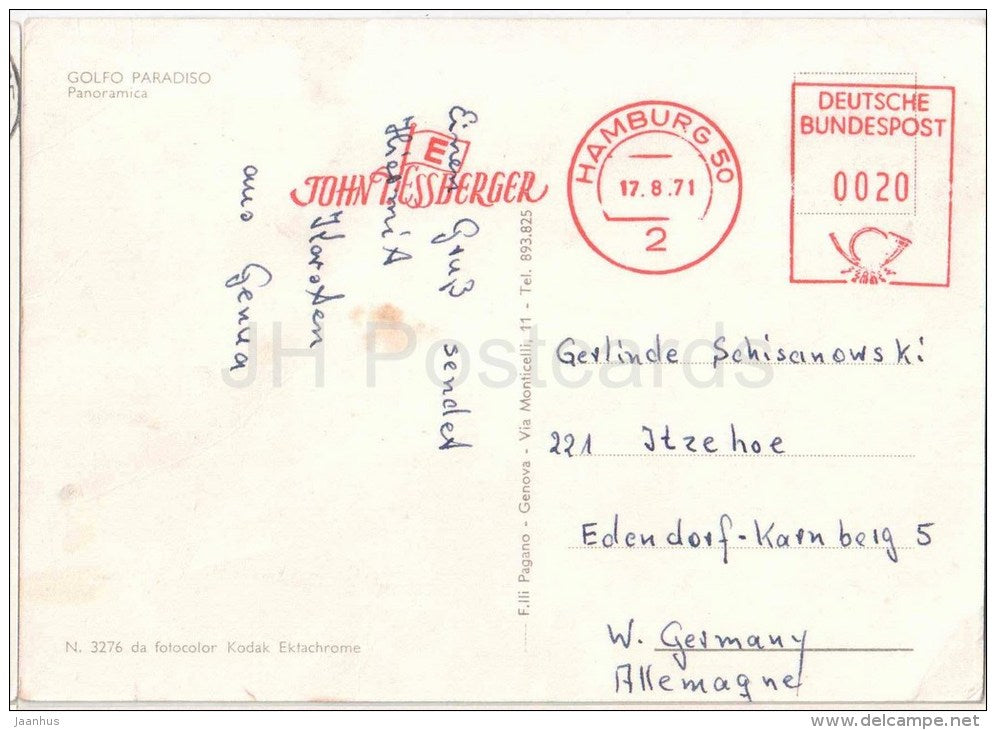 GOLFO PARADISO
Panoramica
Einen Gruß sendet
Hiermit
Karsten
aus Genua
E
JOHN T. ESSBERGER
HAMBURG 50
17.8.71
2
DEUTSCHE
BUNDESPOST
0020
F.lli Pagano - Genova - Via Monticelli, 11 - Tel. 893.825
Gerlinde Schisanowski
221 Itzehoe
Edendorf-Karnberg 5
W. Germany
Allemagne
N. 3276 da fotocolor Kodak Ektachrome
JH Postcards
Jaanhus
delcampe.net